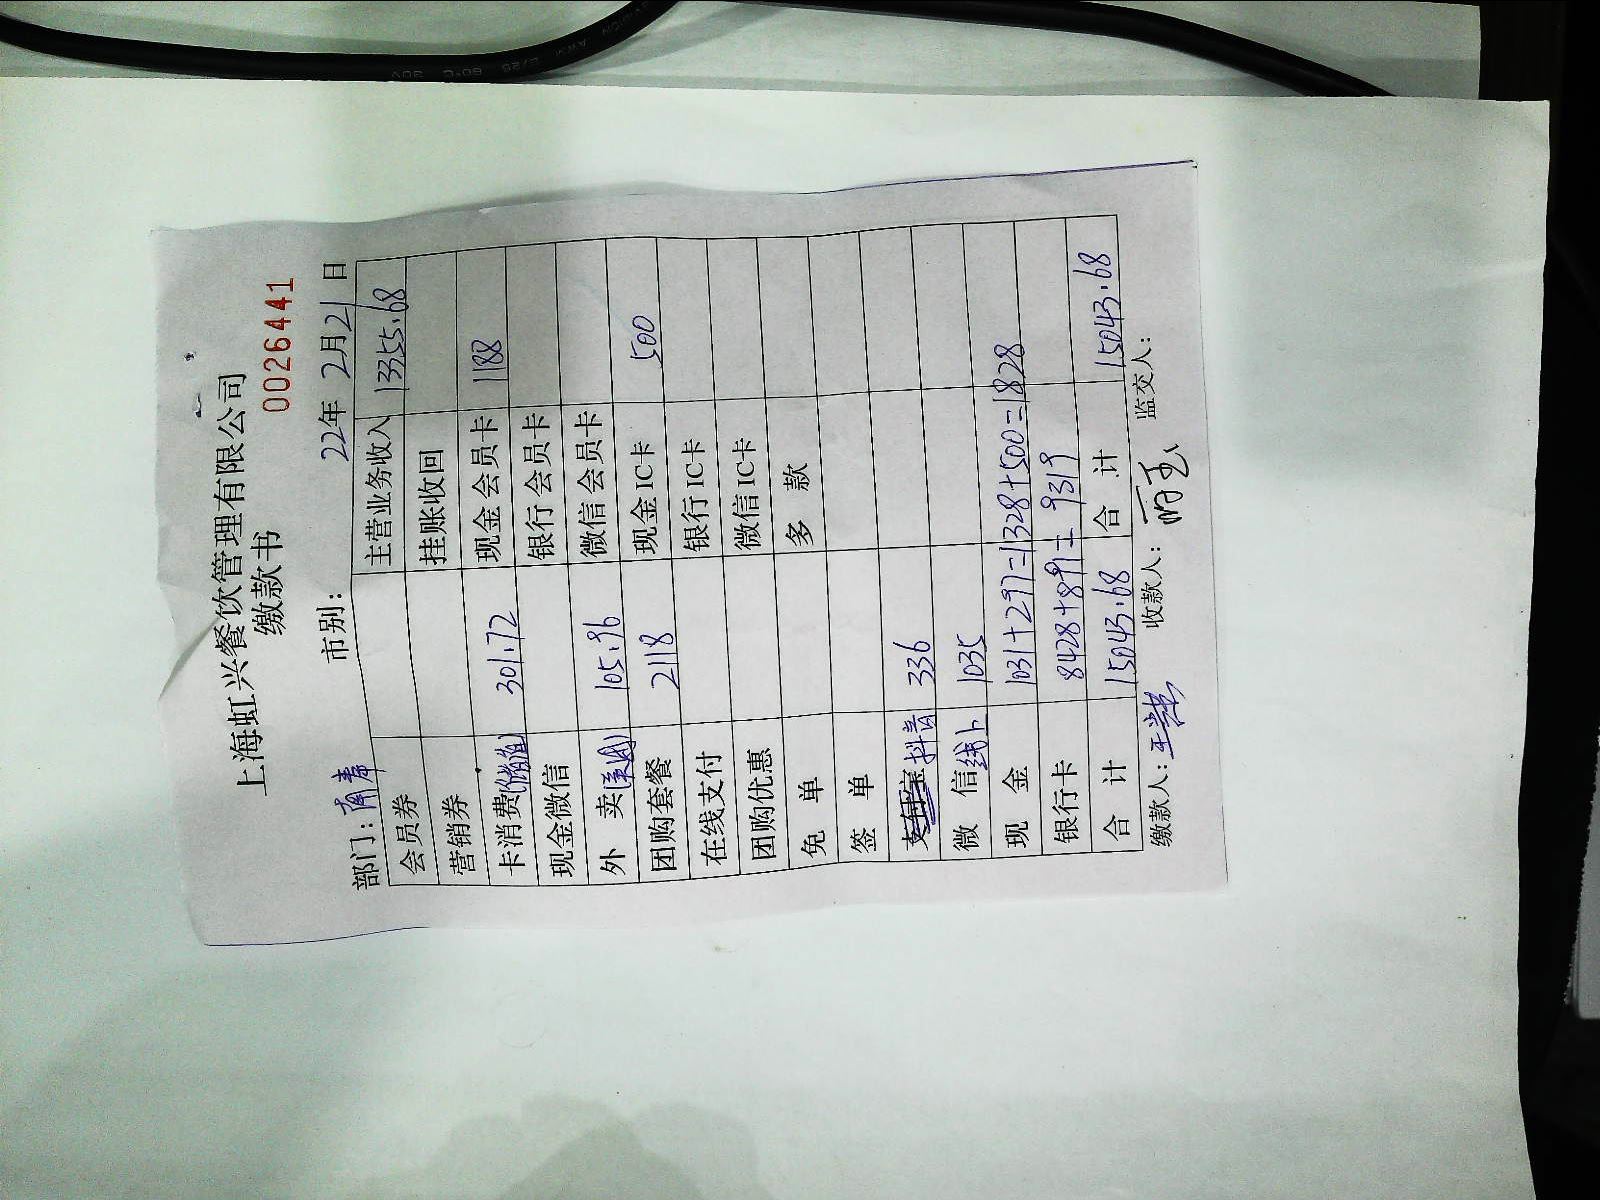 上海虹兴餐饮管理有限公司
缴款书
0026441
部门: 市别: 22年 2月21日
会员券 主营业务收入 13355.68
营销券 挂账收回
卡消费(储值) 301.72 现金会员卡 1188
现金微信 银行会员卡
外 卖(美团) 105.96 微信会员卡
团购套餐 2118 现金IC卡 500
在线支付 银行IC卡
团购优惠 微信IC卡
免 单 多 款
签 单
支付宝抖音 336
微 信线上 1035
现 金 1031+297=1328+500=1828
银行卡 8428+891=9319
合 计 15043.68 合 计 15043.68
缴款人: 收款人: 监交人: